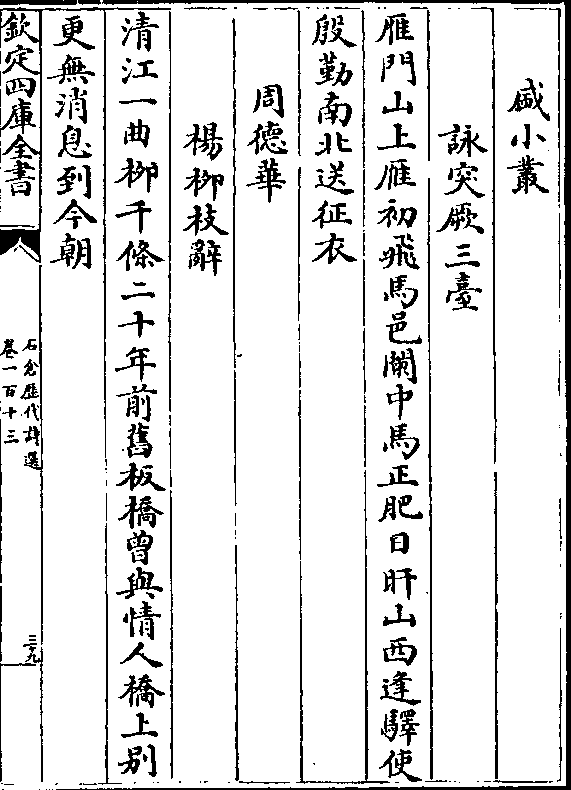 盛小叢
詠突厥三臺
雁門山上雁初飛馬邑闌中馬正肥日旰山西逢驛使
殷勤南北送征衣
周德華
楊柳枝辭
清江一曲柳千條二十年前舊板橋曾與情人橋上别
更無消息到今朝
欽定四庫全書
石倉歷代詩選
卷一百十三
三九